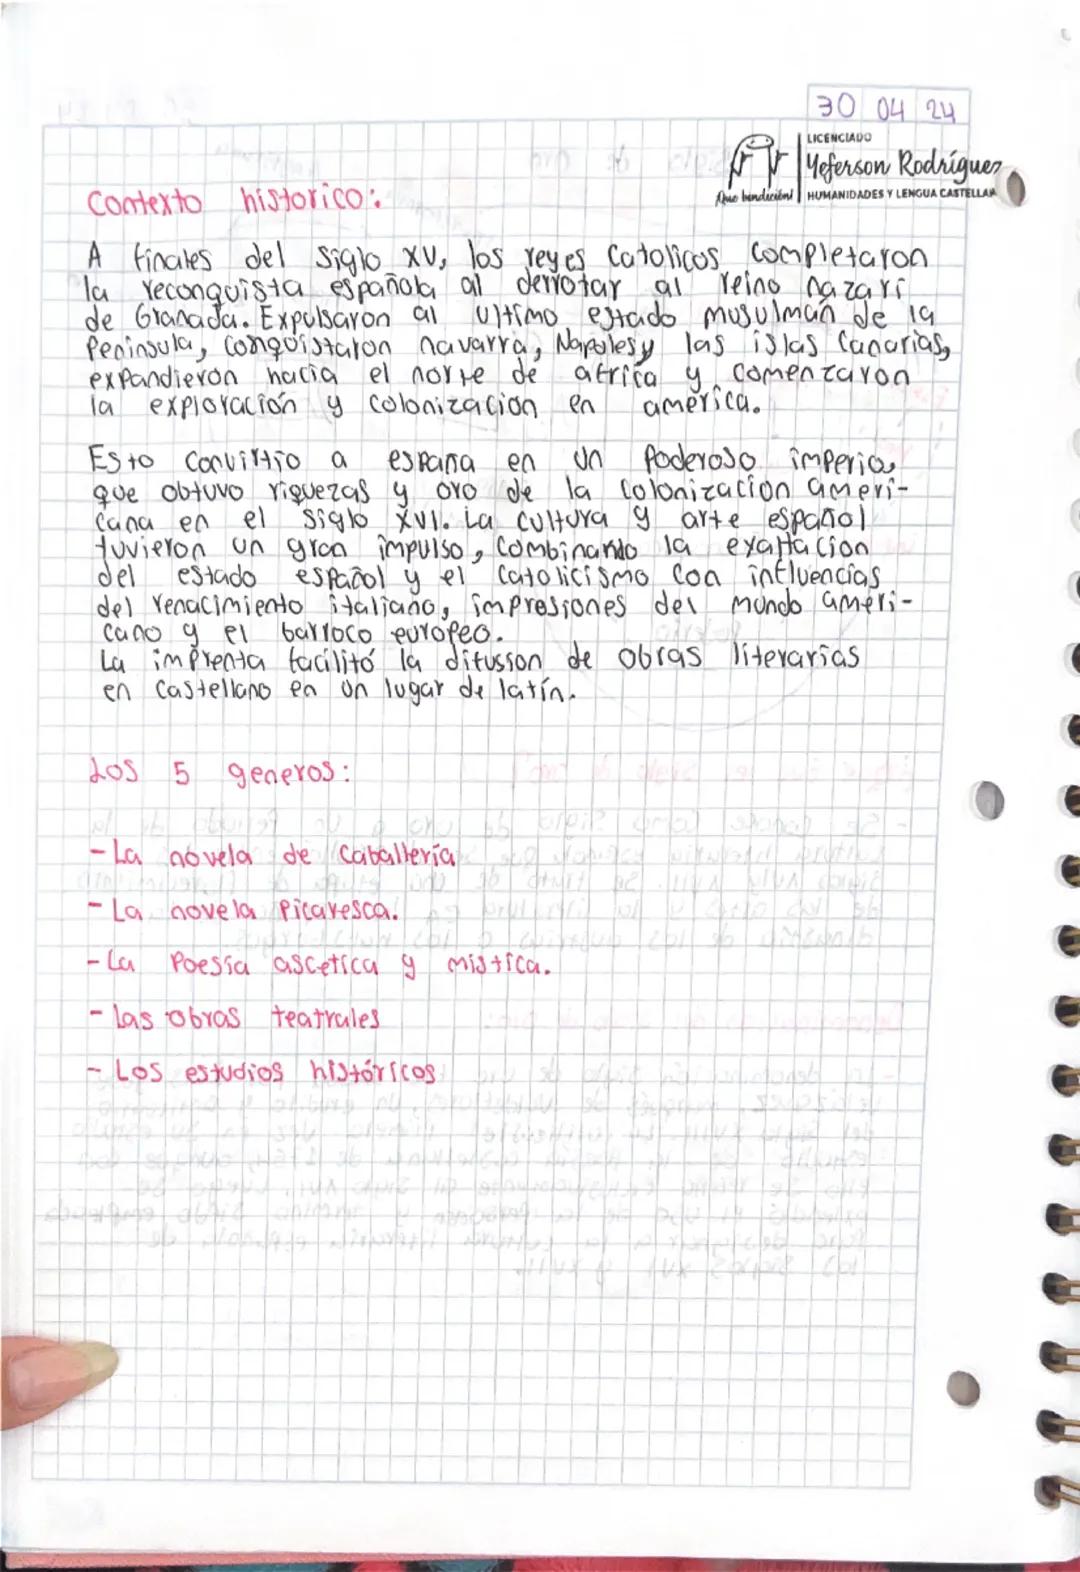 30 04 24
LICENCIADO
Yeferson Rodríguez
Que bendición! HUMANIDADES Y LENGUA CASTELLAN
Contexto historico:
A finales del siglo XV, los reyes Catolicos completaron
la reconquista española al derrotar al reino nazarí
de Granada. Expulsaron al ultimo estado musulmán de la
Peninsula, conquistaron navarra, Napoles y las islas Canarias,
expandieron hacia el norte de africa y comenzaron
la exploración y colonizacion en américa.
Esto convirtio a españa en un Poderoso imperio,
que obtuvo riquezas y oro de la colonizacion ameri-
cana en el siglo XVI. La cultura y arte español
tuvieron un gran impulso, combinando la exaltacion
del estado español y el catolicismo con influencias
del renacimiento italiano, impresiones del mundo ameri-
cano y el barroco europeo.
La imprenta facilitó la difussion de obras literarias
en castellano en un lugar de latín.
Los 5 generos:
- La novela de caballería
- La novela Picaresca.
- La Poesía ascetica y mistica.
- las obras teatrales
- Los estudios históricos